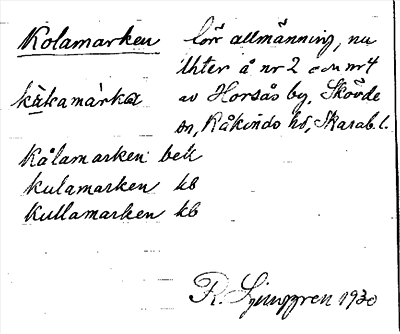 Kolamarken förr allmänning, nu
åker å nr 2 och nr 4
av Horsås by, Skövde
sn, Kåkinds hd, Skarab. l.
Kålamarken bek
kulamarken kb
kullamarken kb
R. Ljunggren 1930